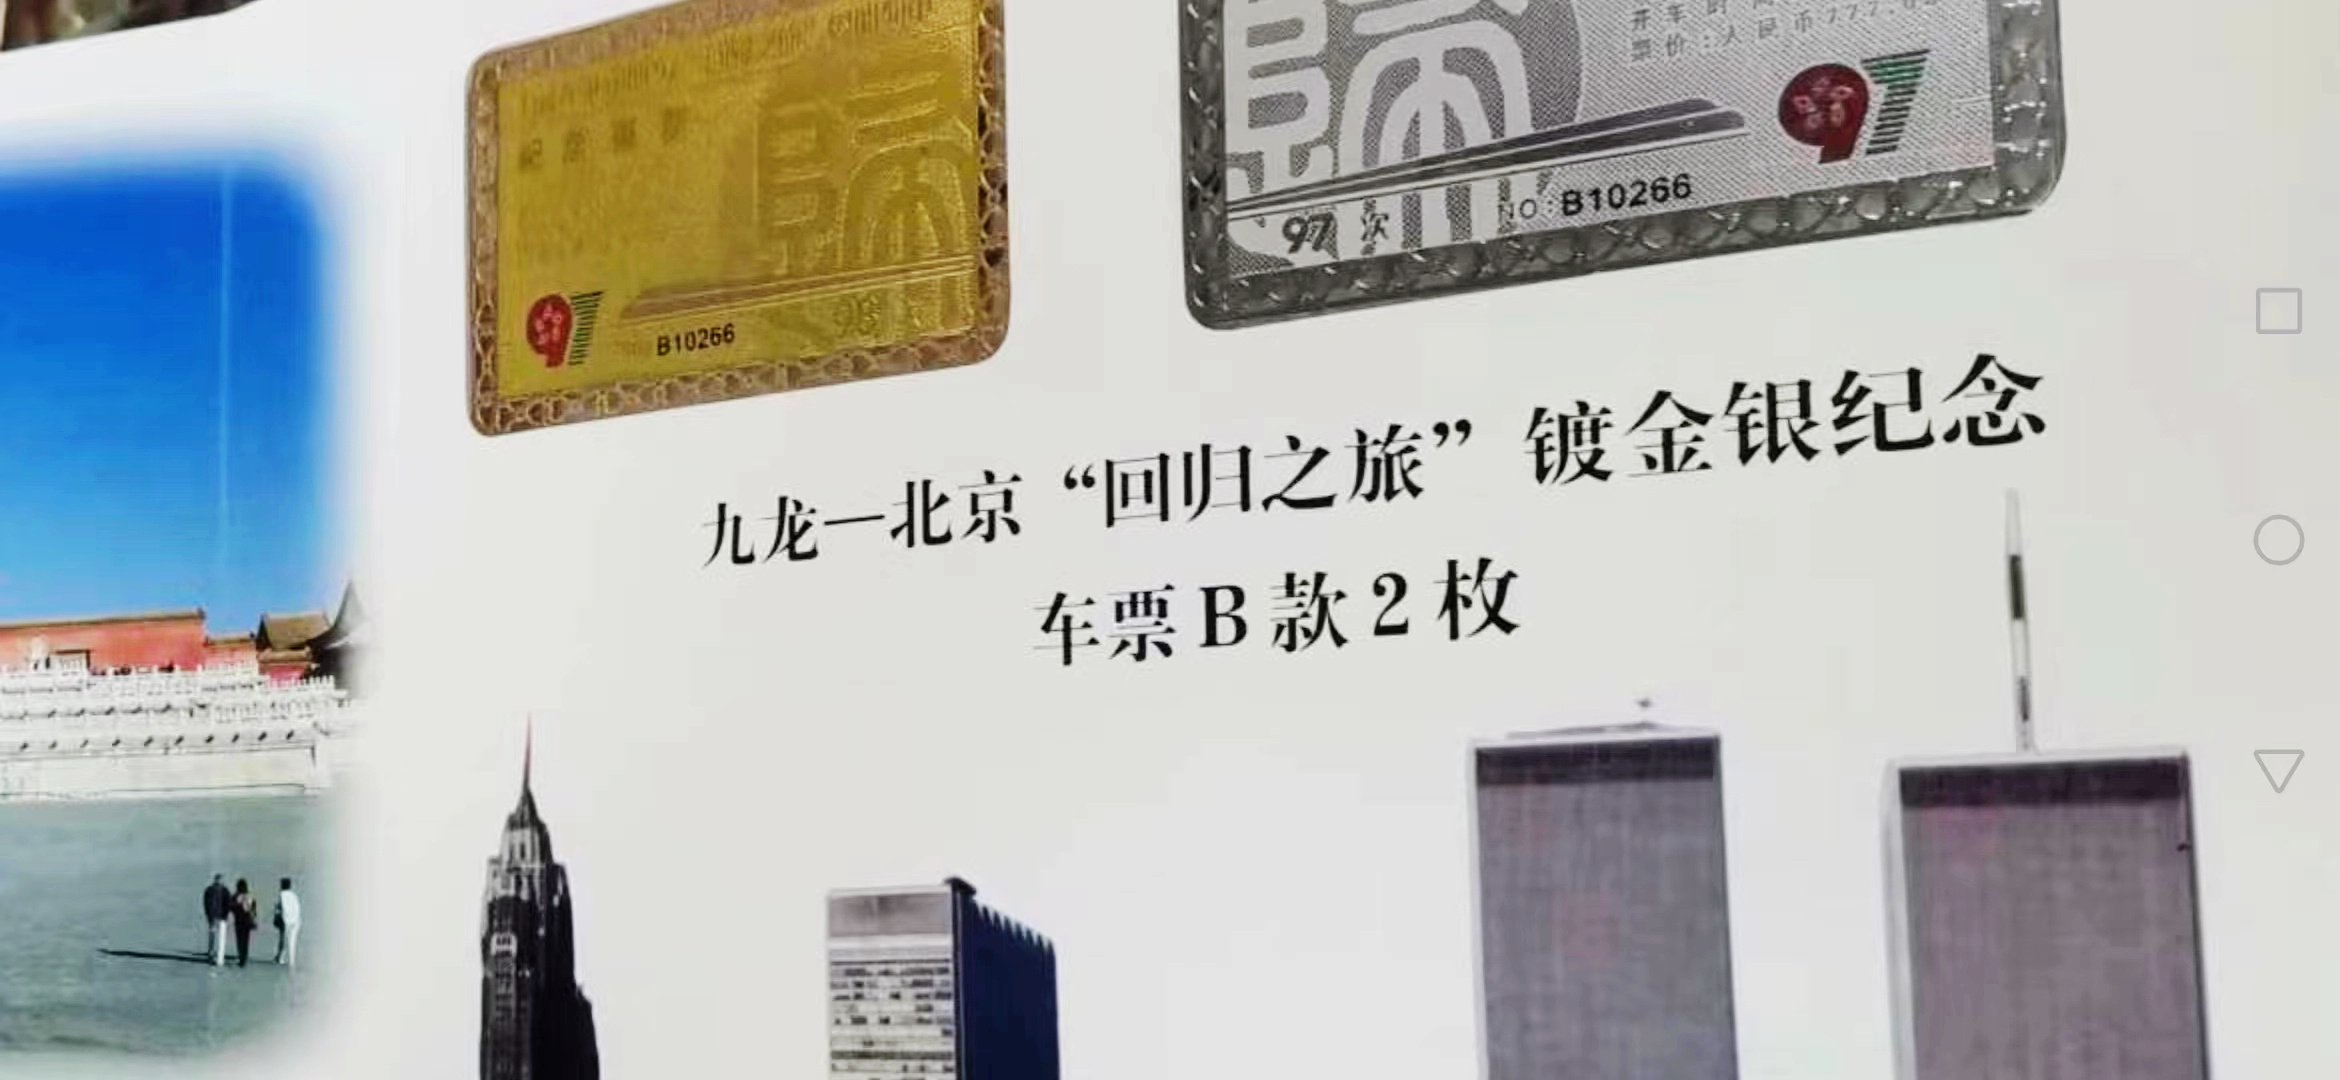 紀念車票
97
B10266
开车时间
票价:人民币777.0
97
97次 NO:B10266
九龙—北京“回归之旅”镀金银纪念
车票B款2枚